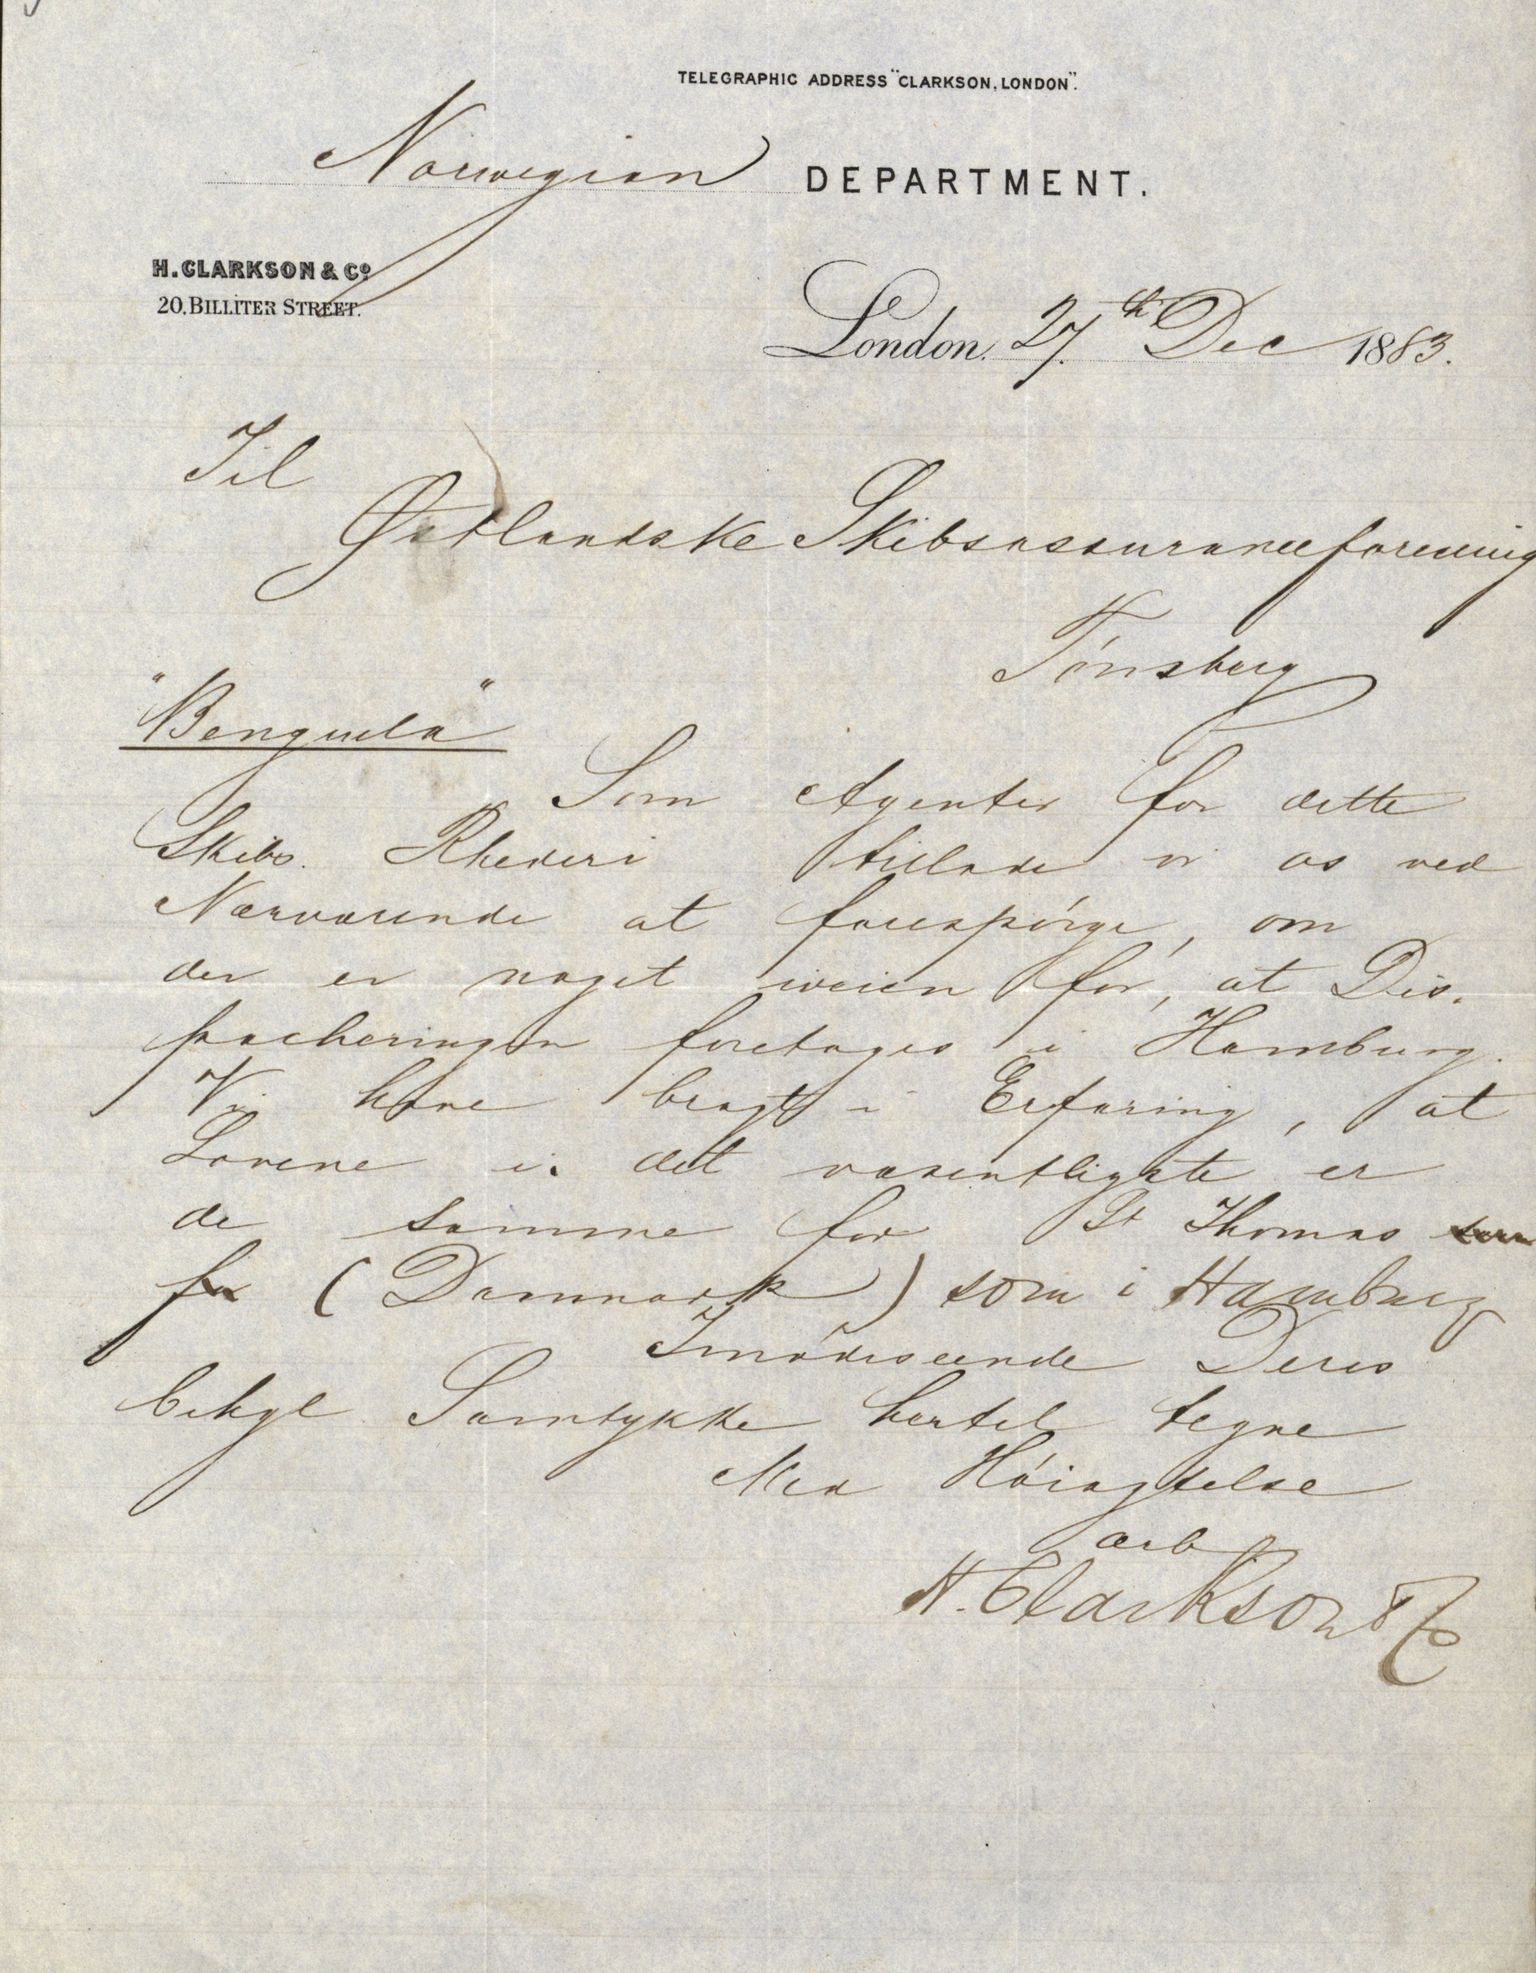 TELEGRAPHIC ADDRESS "CLARKSON, LONDON".
Norwegian DEPARTMENT.
H. CLARKSON & Co.
20, BILLITER STREET.
London, 27th Dec 1883.
Til
Østlandske Skibsassuranceforening
Tönsberg
"Benguela"
Som Agenter for dette
Skibs Rhederi tillade vi os ved
Nærværende at forespörge, om
der er noget iveien for, at Dis-
pacheringen foretages i Hamburg.
Vi have bragt i Erfaring, at
Lovene i det væsentligste er
de samme for St Thomas som
for (Danmark) som i Hamburg
Imödeseende Deres
behgl Samtykke hertil tegne
Med Höiagtelse
ærb
H. Clarkson & Co